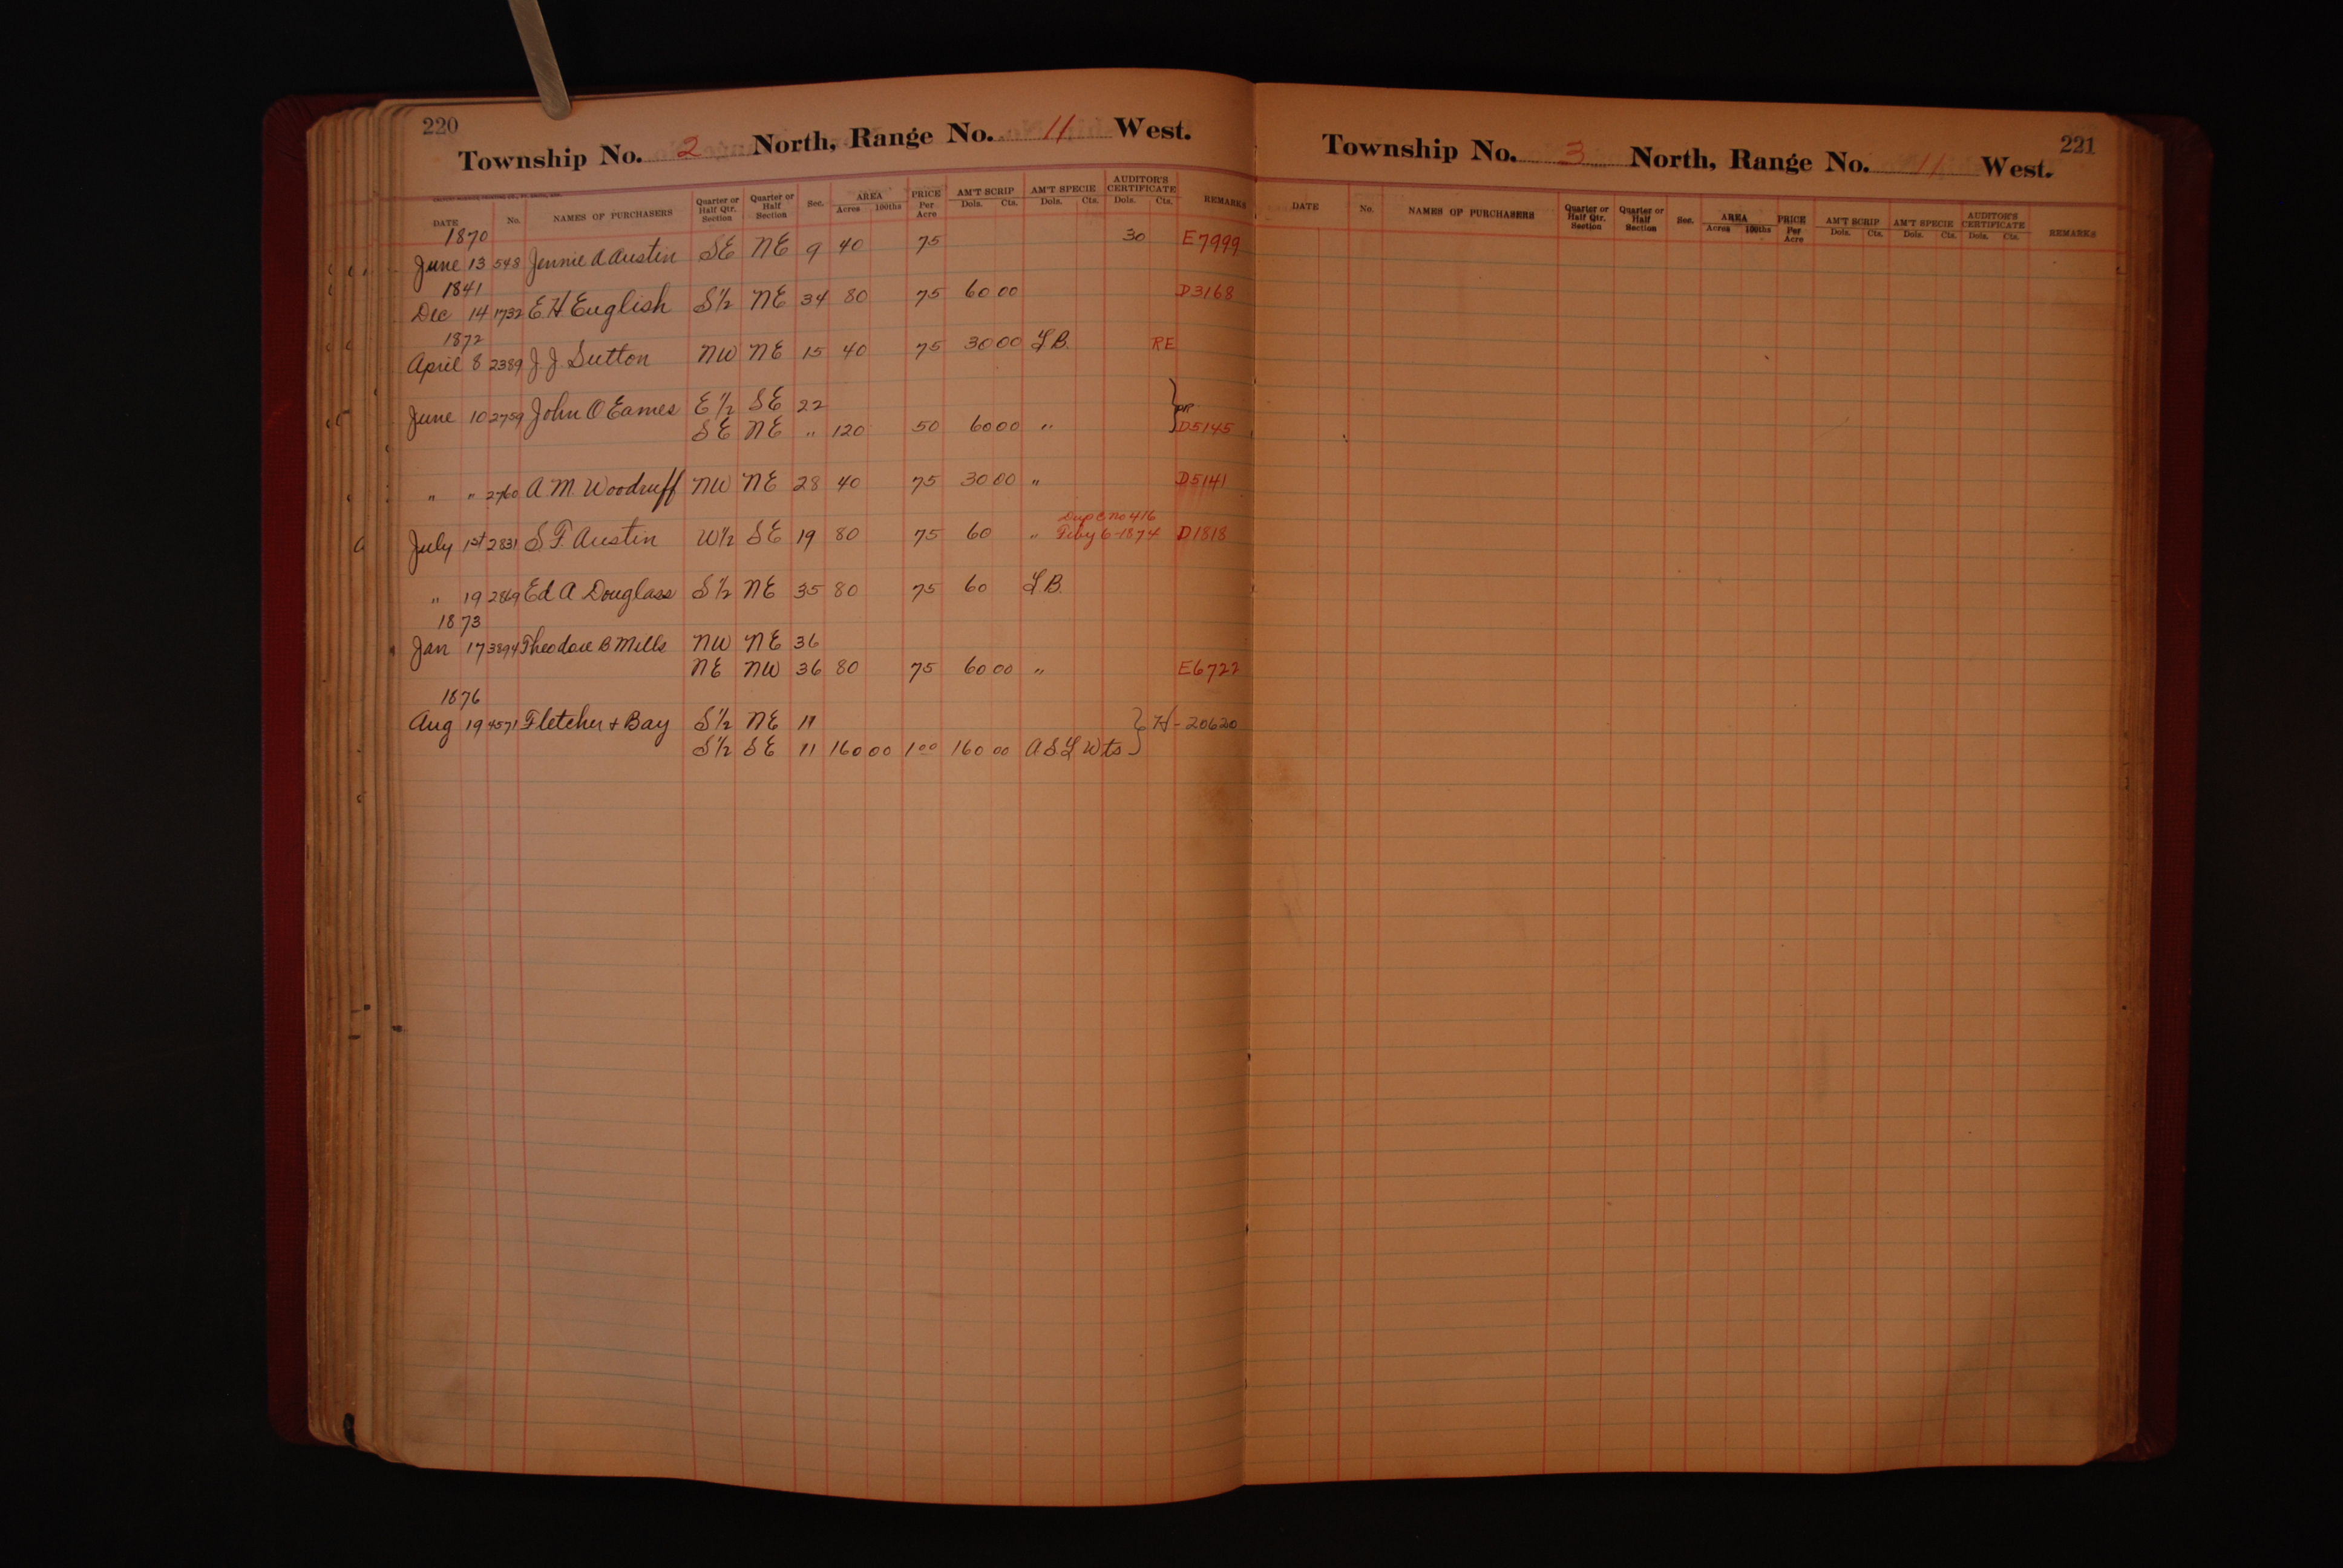 220
Township No. 2 North, Range No. 11 West.
DATE No. NAMES OF PURCHASERS Quarter or Half Qtr. Section Quarter or Half Section Sec. AREA Acres 100ths PRICE Per Acre AM'T SCRIP Dols. Cts. AM'T SPECIE Dols. Cts. AUDITOR'S CERTIFICATE Dols. Cts. REMARKS
1870
June 13 548 Jennie A Austin SE NE 9 40 75 30 E7999
1841
Dec 14 1732 E H English S½ NE 34 80 75 60 00 D3168
1872
April 8 2389 J. J. Sutton NW NE 15 40 75 30 00 L.B. RE
June 10 2759 John O Eames E½ SE 22
SE NE " 120 50 60 00 " D5145
" " 2760 A. M. Woodruff NW NE 28 40 75 30 00 " D5141
Dup C no 416
July 1st 2831 S. F. Austin W½ SE 19 80 75 60 " Feby 6-1874 D1818
" 19 2869 Ed A Douglass S½ NE 35 80 75 60 L.B.
1873
Jan 17 3894 Theodore B Mills NW NE 36
NE NW 36 80 75 60 00 " E6722
1876
Aug 19 4571 Fletcher + Bay S½ NE 11 } H - 20620
S½ SE 11 160 00 1 00 160 00 A S L Wts
221
Township No. 3 North, Range No. 11 West.
DATE No. NAMES OF PURCHASERS Quarter or Half Qtr. Section Quarter or Half Section Sec. AREA Acres 100ths PRICE Per Acre AM'T SCRIP Dols. Cts. AM'T SPECIE Dols. Cts. AUDITOR'S CERTIFICATE Dols. Cts. REMARKS